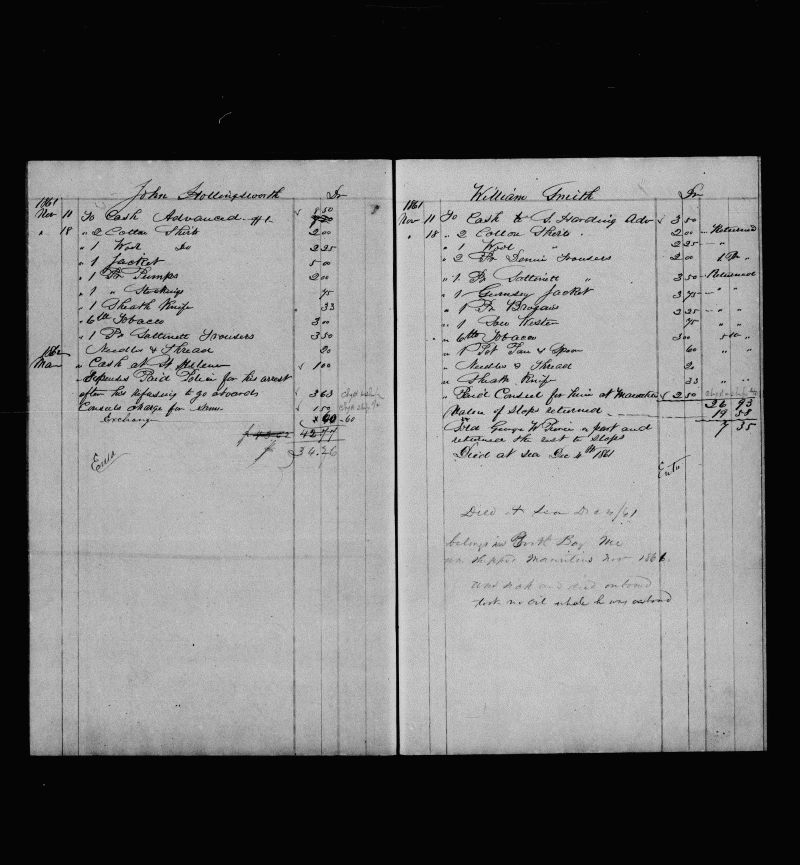 John Hollingsworth Dr
1861
Nov 11 To Cash Advanced 8 50
" 18 " 2 Cotton Shirts 2 00
" 1 Wool Do 2 25
" 1 Jacket 5 00
" 1 Pr Pumps 2 00
" 1 " Stockings 75
" 1 Sheath Knife 33
" 6 lb Tobacco 3 00
" 1 Pr Sattinett Trousers 3 50
Needles & Thread 20
1862
Mar " Cash at St Helena 1 00
Expenses Paid Police for his arrest
after his refusing to go aboard 3 63
Consuls charge for Same 1 50
Exchange 60 - 60
42 77
34.26
William Smith Dr
1861
Nov 11 To Cash to S. Harding Adv 3 50
" 18 " 2 Cotton Shirts 2 00 - Returned
" 1 Wool " 2 25 - "
" 2 Pr Denim Trousers 2 00 1 Pr "
" 1 Pr Sattinett " 3 50 - Returned
" 1 Gurnsey Jacket 3 75 - " "
" 1 Pr Brogans 2 25 - " "
" 1 Sou Wester 75 " "
" 6 lb Tobacco 3 00 5 lb "
" 1 Pot Pan & Spoon 60 " "
" Needles & Thread 20
" Sheath Knife 33 " "
" Paid Consul for him at Mauritius 2 50
26 93
Value of Slops returned 19 58
Sold George W in part and 7 35
returned the rest to Slops
Died at sea Dec 4th 1861
Died at Sea Dec 4/61
belongs in Booth Bay Me
was shipped Mauritius Nov 1861
was sick and died onboard
took no oil while he was onboard